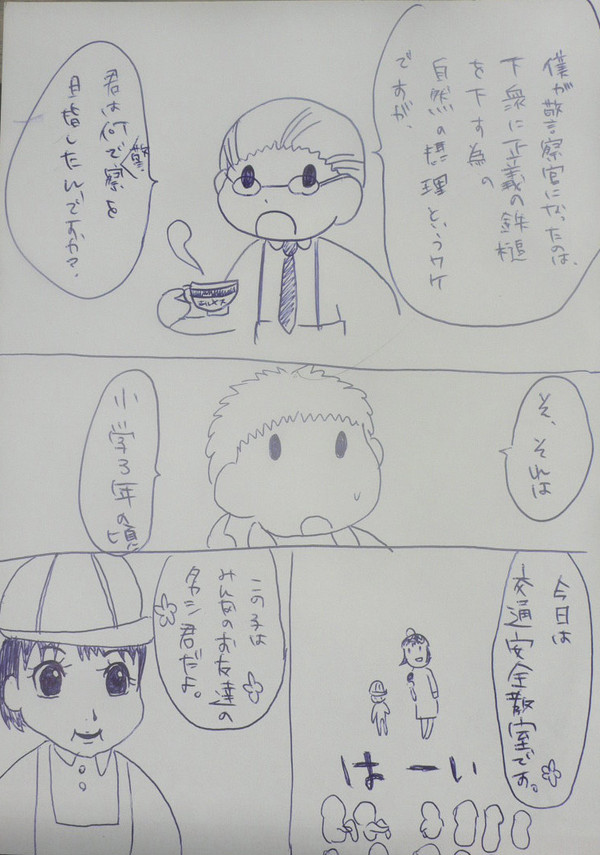 僕が警察官になったのは、
下衆に正義の鉄槌
を下す為の
自然の摂理というワケ
ですが、
君は何で警察を
目指したんですか?
そ、それは
小学3年の頃
今日は
交通安全教室です。
はーい
この子は
みんなのお友達の
タカシ君だよ。